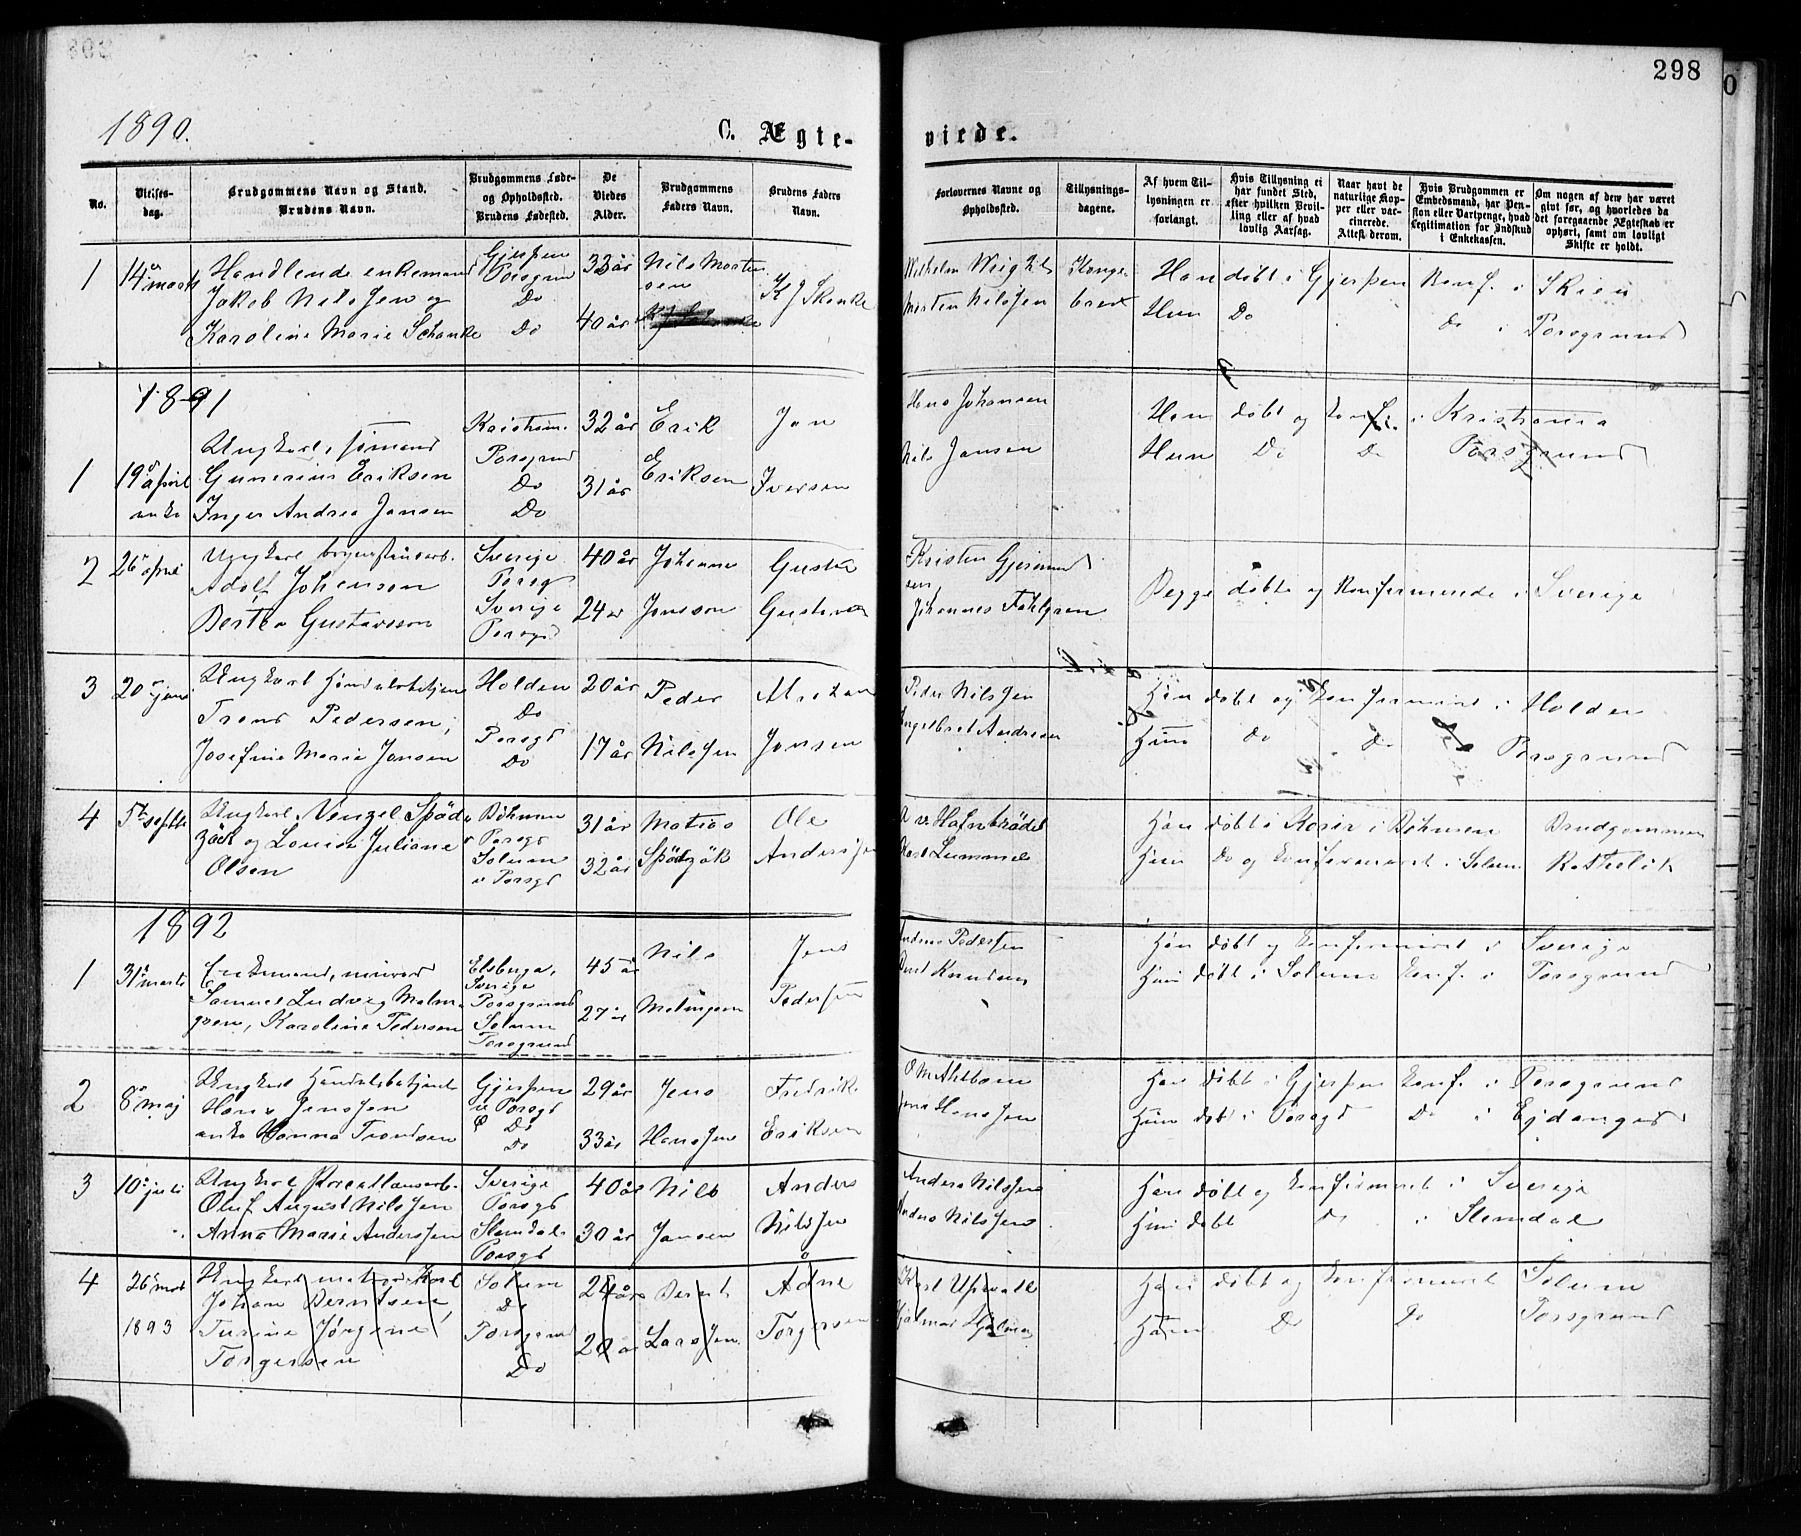 298
1890.
C. Ægte-
viede.
No.
Vielses-
dag.
Brudgommens Navn og Stand.
Brudens Navn.
Brudgommens Føde-
og Opholdssted.
Brudens Fødested.
De
Viedes
Alder.
Brudgommens
Faders Navn.
Brudens Faders
Navn.
Forlovernes Navne og
Opholdssted.
Tillysnings-
dagene.
Af hvem Til-
lysningen er
forlangt.
Hvis Tillysning ei
har fundet Sted,
efter hvilken Bevil-
ling eller af hvad
lovlig Aarsag.
Naar havt de
naturlige Kop-
per eller vac-
cinerede.
Attest derom.
Hvis Brudgommen er
Embedsmand, har Pen-
sion eller Vartpenge, hvad
Legitimation for Indskud
i Enkekassen.
Om nogen af dem har været
givt før, og hvorledes da
det foregaaende Ægteskab er
ophørt, samt om lovligt
Skifte er holdt.
1
14 marts
Handlende enkemand
Jakob Nilssen og
Karoline Marie Schanke
Gjerpen
Porsgrund
Do
Do
33 år
40 år
Nils Morten
sen
K J Skanke
Morten Nilssen
Konge
brev
Han døbt i Gjerpen Konf. i Skien
Hun Do Do i Porsgrund
1891
1
19 april
Ungkarl, sømand
Gunerius Eriksen
Inger Andrea Jansen
Porsgrund
Do
Do
32 år
31 år
Erik
Eriksen
Jan
Iversen
Hans Johansen
Nils Jansen
Han døbt og konf. i Kristiania
Hun Do Do Porsgrund
2
26 april
Ungkarl
Adolf Johanson
Berta Gustavsson
Sverige
Porsg
Sverige
Porsgd
40 år
24 år
Jonsson
Kristen Gjermund
sen
Johannes Fahlgren
Begge døbte og Konfirmerede i Sverige
3
20 juni
Ungkarl Handelsbetjent
Trond Pedersen,
Josefine Marie Jansen
Holden
Do
Porsgd
Do
20 år
17 år
Peder
Nilssen
Jansen
Peder Nilssen
Engelbret Andresen
Han døbt og konfirmeret i Holden
Hun do Do Porsgrund
4
5te septbr
Ungkarl Venzel Spöd
zäck og Louise Juliane
Olsen
Böhmen
Porsgd
Solum
Porsgd
31 år
32 år
Matias
Ole
Anderssen
Lummel
Han døbt i i Böhmen Brudgommen
Hun Do og konfirmeret i Solum Katholik
1892
1
31 marts
Enkemand, murer
Samuel Ludvig Malm-
gren, Karoline Pedersen
Elsborga,
Sverige
Porsgrund
Solum
Porsgrund
45 år
27 år
Nils
Malmgren
Jens
Pedersen
Anders Pedersen
Knudsen
Han døbt og konfirmeret i Sverige
Hun døbt i Solum konf. i Porsgrund
2
8 maj
Ungkarl Handelsbetjent
Hans Jenssen
enke Hanna Trondsen
Gjerpen
Porsgd
Do
Do
29 år
33 år
Jens
Hanssen
Fredrik
Eriksen
Jens Hanssen
Han døbt i Gjerpen konf. i Porsgrund
Hun døbt i Porsgd Do i Ejdanger
3
10 juli
Ungkarl Porcellænsarb.
Oluf August Nilssen
Anna Marie Anderssen
Sverige
Porsgd
Slemdal
Porsgd
40 år
30 år
Nils
Jansen
Anders
Nilssen
Anders Nilssen
Anders Nilssen
Han døbt og konfirmeret i Sverige
Hun døbt do i Slemdal
4
26
1893
Ungkarl matros Karl
Johan Berntsen,
Turine Jørgine
Torgersen
Solum
Do
Porsgrund
Do
Bernt
Larssen
Torgersen
Karl
Hjalmar
Han døbt og konfirmeret Solum
Hun Do Do Porsgrund